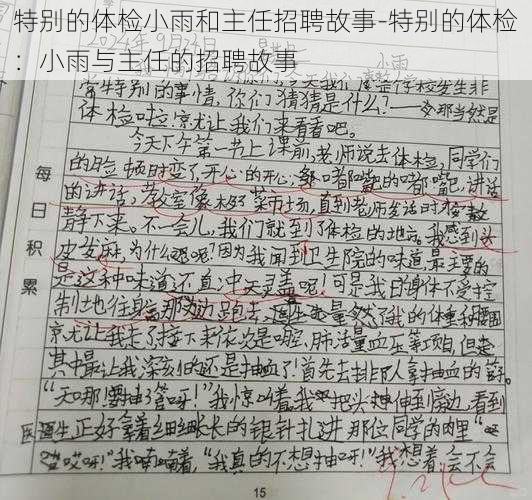 特别的体检小雨和主任招聘故事-特别的体检
：小雨与主任的招聘故事
小雨
今天我们整个学校发生非
常特别的事情,你们猜猜是什么?——多那当然是
体检啦!就让我们来看看吧。
今天下午第一节上课前,老师说去体检,同学们
的脸顿时变了,开心的开心,嘟嘴的嘟嘴,讲话
的讲话,教室像极了菜市场,直到老师发话时才安
静下来。不一会儿,我们就到了体检的地方。我感到头
皮发麻,为什么呢?因为我闻到卫生院的味道,最主要的
是这种味道还直冲天灵盖呢!可是我的身体不受控
制地往那边跑去,医生量了我的体重和腰围
让我走了接下来依次是眼,肺活量血压等项目但是
其中最让我深刻的还是抽血了!首先去排队拿抽血的
“天哪要抽了管呀!”我惊叫着,我把头伸到旁边,看到
医生正好拿着细细长长的银针扎进那位同学的肉里“
哎呀!”我喃喃着,“我真的不想抽呀!”我想着会不会
每日积累
15